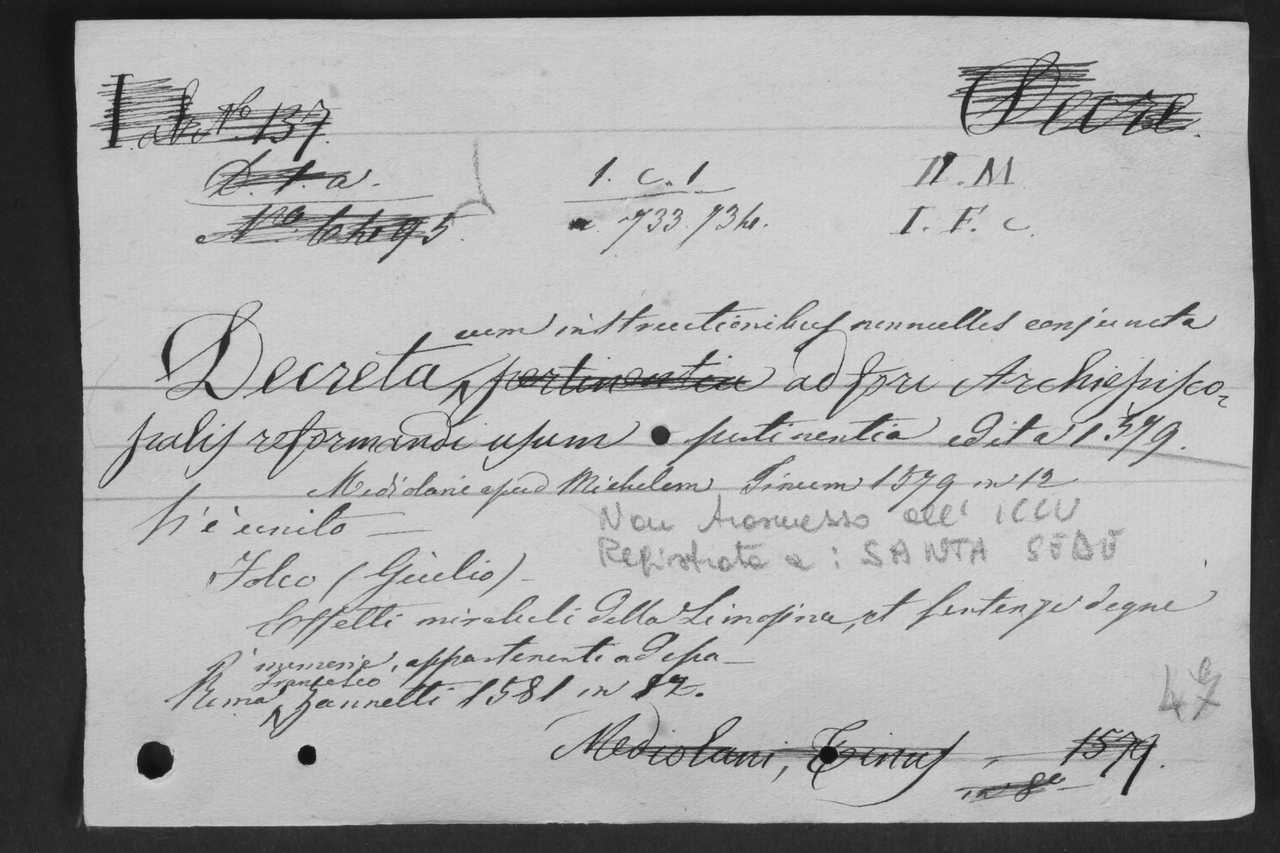 No 137.
Decre
D. 1. a.
1. c. 1
II. M
95.
733. 734.
I. F. c.
cum instructionibus nonnullis conjuncta
Decreta, pertinentia ad fori Archiepisco-
palis reformandi usum pertinentia edita 1579.
Mediolani apud Michelem Tinum 1579 in 12
V'è unito —
Folco (Giulio) —
Effetti mirabili della Limosina, et sentenze degne
memorie, appartenenti ad essa —
Francesco
Roma, Zannetti 1581 in 8º.
Non trasmesso all' ICCU
Registrata a: SANTA SEDE
47
Mediolani, Tinus, 1579.
in 8º